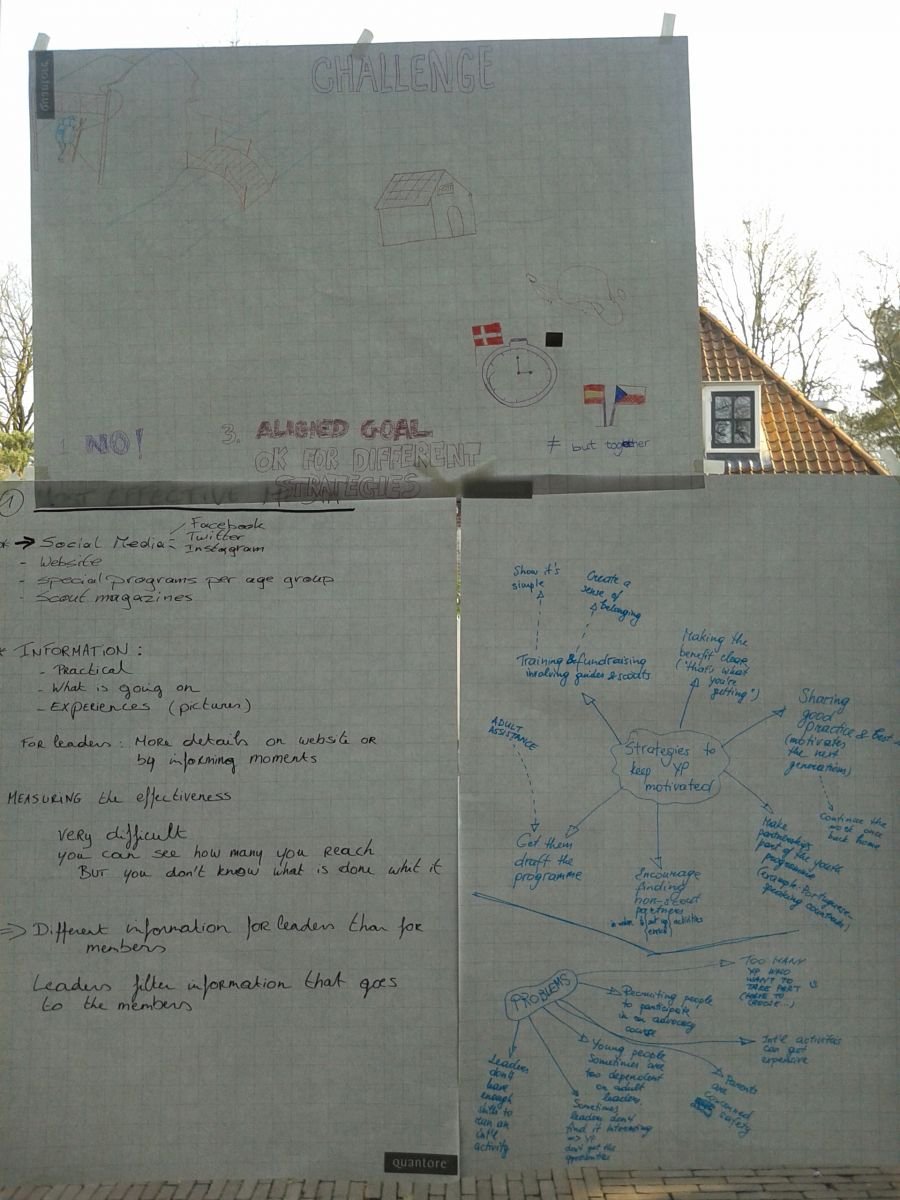 CHALLENGE
1. NO!
3. ALIGNED GOAL
OK FOR DIFFERENT
STRATEGIES
≠ but together
1
EFFECTIVE
* → Social Media:
Facebook
Twitter
Instagram
- Website
- special programs per age group
- Scout magazines
* INFORMATION:
- Practical
- What is going on
- Experiences (pictures)
For leaders: More details on website or
by informing moments
MEASURING the effectiveness
Very difficult
you can see how many you reach
But you don't know what is done whit it
=> Different information for leaders than for
members
Leaders filter information that goes
to the members
quantore
Show it's
simple
Create a
sense of
belonging
Training & fundraising
involving guides & scouts
Making the
benefit clear
("that's what
you're
getting")
Sharing
good
practice & Best
(motivates
the next
generations)
Continue the
work once
back home
ADULT
ASSISTANCE
Strategies to
keep YP
motivated
Get them
draft the
programme
Encourage
finding
non-scout
partners
activities
Make
partnerships
part of the youth
programme
(example: Portuguese-
speaking countries)
PROBLEMS
TOO MANY
YP WHO
WANT TO
TAKE PART
(HAVE TO
CHOOSE...)
Recruiting people
to participate
in an advocacy
course
Int'l activities
can get
expensive
Parents
are
concerned
safety
Young people
sometimes are
too dependent
on adult
leaders
Sometimes
leaders don't
find it interesting
=> YP
don't get the
opportunities
Leaders
don't
have
enough
skills to
run an
int'l
activity